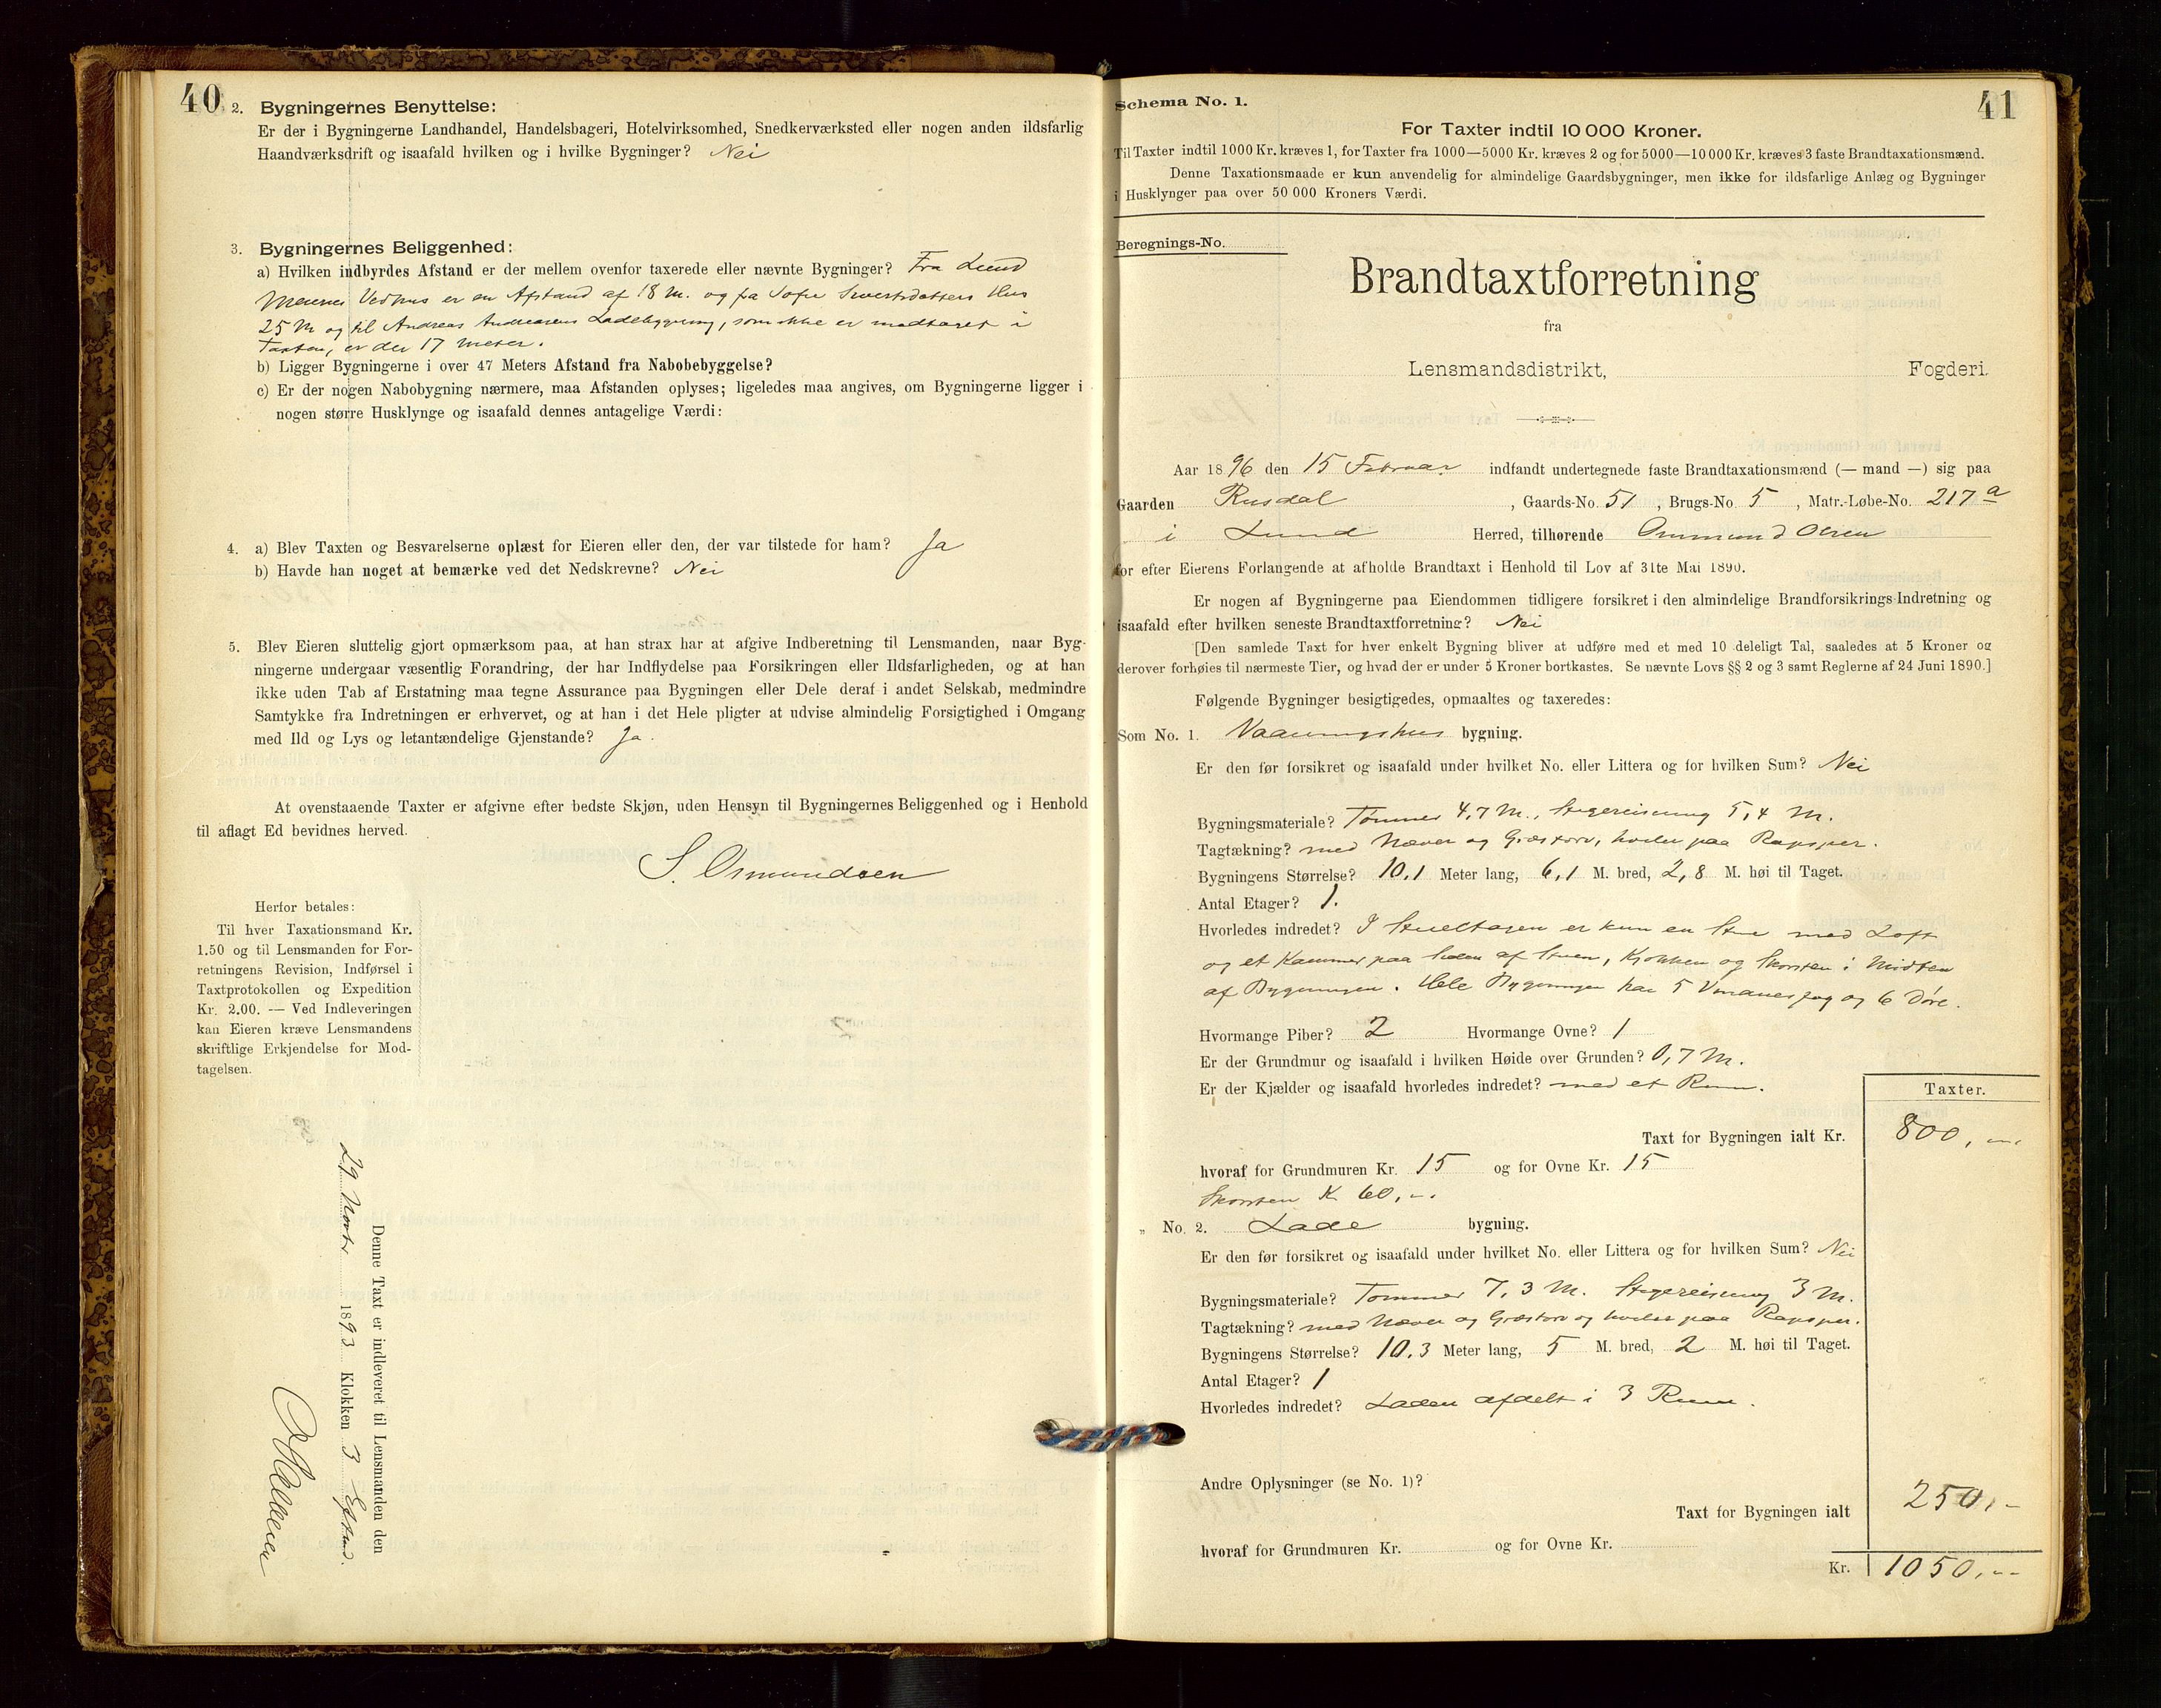 40
2. Bygningernes Benyttelse:
Er der i Bygningerne Landhandel, Handelsbageri, Hotelvirksomhed, Snedkerværksted eller nogen anden ildsfarlig
Haandværksdrift og isaafald hvilken og i hvilke Bygninger? Nei
3. Bygningernes Beliggenhed:
a) Hvilken indbyrdes Afstand er der mellem ovenfor taxerede eller nævnte Bygninger? Fra Lund
Vedhus er en Afstand af 18 M. og fra Sofie Sivertsdatters Hus
25 M og til Andreas Andreasens Ladebygning, som ikke er medtaget i
Taxten, er der 17 Meter.
b) Ligger Bygningerne i over 47 Meters Afstand fra Nabobebyggelse?
c) Er der nogen Nabobygning nærmere, maa Afstanden oplyses; ligeledes maa angives, om Bygningerne ligger i
nogen større Husklynge og isaafald dennes antagelige Værdi:
4. a) Blev Taxten og Besvarelserne oplæst for Eieren eller den, der var tilstede for ham? Ja
b) Havde han noget at bemærke ved det Nedskrevne? Nei
5. Blev Eieren sluttelig gjort opmærksom paa, at han strax har at afgive Indberetning til Lensmanden, naar Byg-
ningerne undergaar væsentlig Forandring, der har Indflydelse paa Forsikringen eller Ildsfarligheden, og at han
ikke uden Tab af Erstatning maa tegne Assurance paa Bygningen eller Dele deraf i andet Selskab, medmindre
Samtykke fra Indretningen er erhvervet, og at han i det Hele pligter at udvise almindelig Forsigtighed i Omgang
med Ild og Lys og letantændelige Gjenstande? Ja.
At ovenstaaende Taxter er afgivne efter bedste Skjøn, uden Hensyn til Bygningernes Beliggenhed og i Henhold
til aflagt Ed bevidnes herved.
S. Osmundsen
Herfor betales:
Til hver Taxationsmand Kr.
1.50 og til Lensmanden for For-
retningens Revision, Indførsel i
Taxtprotokollen og Expedition
Kr. 2.00. — Ved Indleveringen
kan Eieren kræve Lensmandens
skriftlige Erkjendelse for Mod-
tagelsen.
Denne Taxt er indleveret til Lensmanden den
29 Novbr 1893 Klokken 3 Eftmd.
41
Schema No. 1.
For Taxter indtil 10 000 Kroner.
Til Taxter indtil 1000 Kr. kræves 1, for Taxter fra 1000—5000 Kr. kræves 2 og for 5000—10 000 Kr. kræves 3 faste Brandtaxationsmænd.
Denne Taxationsmaade er kun anvendelig for almindelige Gaardsbygninger, men ikke for ildsfarlige Anlæg og Bygninger
i Husklynger paa over 50 000 Kroners Værdi.
Beregnings-No.
Brandtaxtforretning
fra
Lensmandsdistrikt, Fogderi.
Aar 1896 den 15 Februar indfandt undertegnede faste Brandtaxationsmænd (— mand —) sig paa
Gaarden Rusdal, Gaards-No. 51, Brugs-No. 5, Matr.-Løbe-No. 217 a
i Lund Herred, tilhørende Ommund Olsen
for efter Eierens Forlangende at afholde Brandtaxt i Henhold til Lov af 31te Mai 1890.
Er nogen af Bygningerne paa Eiendommen tidligere forsikret i den almindelige Brandforsikrings-Indretning og
isaafald efter hvilken seneste Brandtaxtforretning? Nei
[Den samlede Taxt for hver enkelt Bygning bliver at udføre med et med 10 deleligt Tal, saaledes at 5 Kroner og
derover forhøies til nærmeste Tier, og hvad der er under 5 Kroner bortkastes. Se nævnte Lovs §§ 2 og 3 samt Reglerne af 24 Juni 1890.]
Følgende Bygninger besigtigedes, opmaaltes og taxeredes:
Som No. 1. Vaaningshus bygning.
Er den før forsikret og isaafald under hvilket No. eller Littera og for hvilken Sum? Nei
Bygningsmateriale? Tømmer 4,7 M., Stagereisning 5,4 M.
Tagtækning? med Næver og Græstorv, hviler paa Rapsper.
Bygningens Størrelse? 10,1 Meter lang, 6,1 M. bred, 2,8 M. høi til Taget.
Antal Etager? 1.
Hvorledes indredet? I Stueetagen er kun en Stue med Loft
og et Kammer paa Siden af Stuen, Kjøkken og Skorsten i Midten
af Bygningen. Hele Bygningen har 5 Vinduesfag og 6 Døre.
Hvormange Piber? 2 Hvormange Ovne? 1
Er der Grundmur og isaafald i hvilken Høide over Grunden? 0,7 M.
Er der Kjælder og isaafald hvorledes indredet? med et Rum.
Taxter.
Taxt for Bygningen ialt Kr. 800,—
hvoraf for Grundmuren Kr. 15 og for Ovne Kr. 15
Skorsten K 60,—
„ No. 2. Lade bygning.
Er den før forsikret og isaafald under hvilket No. eller Littera og for hvilken Sum? Nei
Bygningsmateriale? Tømmer 7,3 M. Stagereisning 3 M.
Tagtækning? med Næver og Græstorv og hviler paa Rapsper.
Bygningens Størrelse? 10,3 Meter lang, 5 M. bred, 2 M. høi til Taget.
Antal Etager? 1
Hvorledes indredet? Laden afdelt i 3 Rum.
Andre Oplysninger (se No. 1)?
Taxt for Bygningen ialt 250,—
hvoraf for Grundmuren Kr. og for Ovne Kr.
Kr. 1050,—